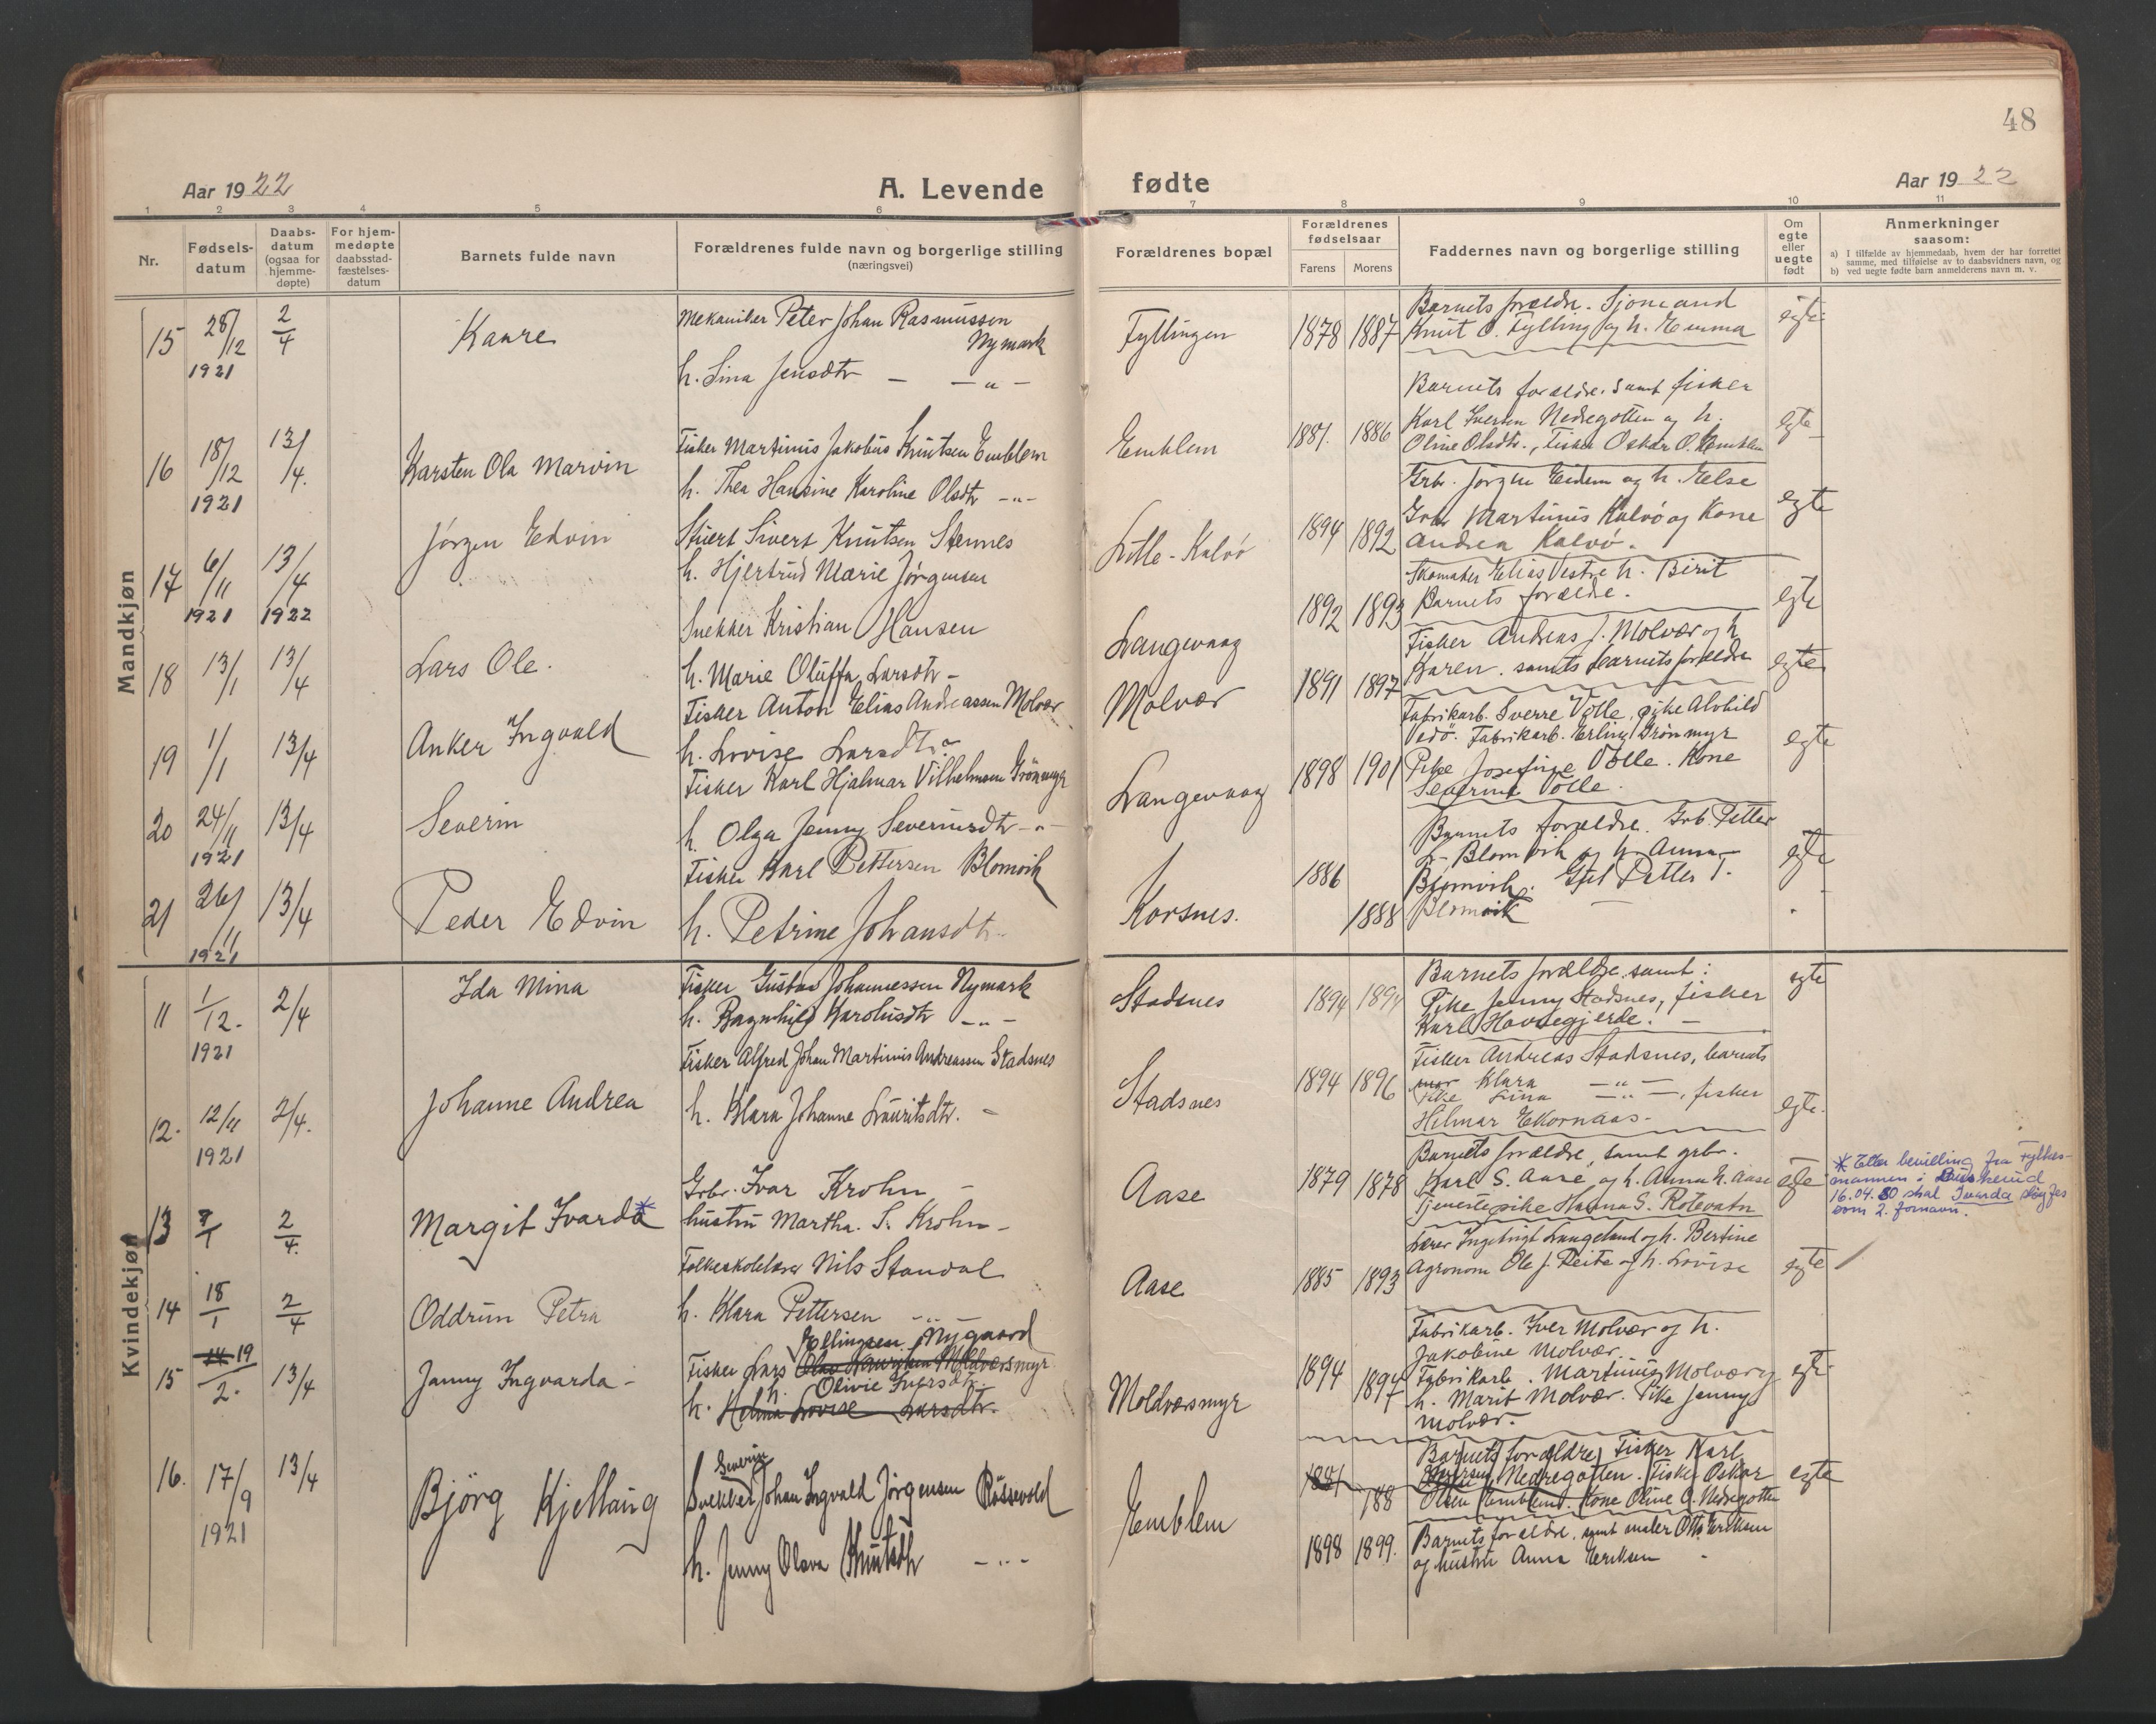 48
Aar 1922 A. Levende fødte Aar 1922
1 2 3 4 5 6 7 8 9 10 11
Nr.
Fødsels-
datum
Daabs-
datum
(ogsaa for
hjemme-
døpte)
For hjem-
medøpte
daabsstad-
fæstelses-
datum
Barnets fulde navn
Forældrenes fulde navn og borgerlige stilling
(næringsvei)
Forældrenes bopæl
Forældrenes
fødselsaar
Farens Morens
Faddernes navn og borgerlige stilling
Om
egte
eller
uegte
født
Anmerkninger
saasom:
a) I tilfælde av hjemmedaab, hvem der har forrettet
samme, med tilføielse av to daabsvidners navn, og
b) ved uegte fødte barn anmelderens navn m. v.
Mandkjøn
15 28/12 1921 2/4 Kaare
Mekaniker Peter Johan Rasmussen
Nymark
h. Lina Jensdtr — — " —
Fyllingen 1878 1887
Barnets forældre. Sjømand
Knut O. Fylling og h. Emma
egte
16 18/12 1921 13/4. Karsten Ola Marvin
Fisker Martinus Jakobus Knutsen Emblem
h. Thea Hansine Karoline Olsdtr -"-
Emblem 1887. 1886
Barnets forældre. Samt fisker
Karl Iversen Nedregotten og h.
Oline Olsdtr., Fisker Oskar O. Emblem
egte
17 6/11 1921 13/4 1922 Jørgen Edvin
Stuert Sivert Knutsen Stennes
h. Hjertrud Marie Jørgensen
Lille-Kalvø 1894 1892
Grbr. Jørgen Eidem og h. Else
Grbr Martinus Kalvø og Kone
Andrea Kalvø.
egte
18 13/1 13/4 Lars Ole.
Snekker Kristian Hansen
h. Marie Oluffa Larsdtr -
Langevaag 1892 1893
Skomaker Elias Vestre h. Berit
Barnets forældre.
egte
19 1/1 13/4 Anker Ingvald
Fisker Anton Elias Andreassen Molvær
h. Lovise Larsdtr.
Molvær 1891 1897
Fisker Andreas J. Molvær og h
Karen. samts barnets forældre
egte
20 24/11 1921 13/4 Severin
Fisker Karl Hjalmar Vilhelmsen Grønmyr
h. Olga Jenny Severinsdtr -"-
Langevaag 1898 1901
Fabrikarb. Sverre Volle, pike Alvhild
Vedø. Fabrikarb. Erling Grønmyr
Pike Josefine Volle. Kone
Severine Volle.
egte
21 26/11 1921 13/4 Peder Edvin
Fisker Karl Pettersen Blomvik
h. Petrine Johansdtr.
Korsnes. 1886 1888
Barnets forældre. Grb. Petter
Blomvik og h. Anna
Blomvik. Petter T.
Blomvik
egte
Kvindekjøn
11 1/12. 1921 2/4 Ida Mina
Fisker Gustav Johannessen Nymark
h. Ragnhild Karolusdtr -"-
Stadsnes 1894 1894
Barnets forældre, samt:
Pike Jenny Stadsnes, fisker
Karl Havsegjerde. —
egte
12. 12/11 1921 2/4. Johanne Andrea
Fisker Alfred Johan Martinus Andreassen Stadsnes
h. Klara Johanne Lauritsdtr.
Stadsnes 1894 1896
Fisker Andreas Stadsnes, barnets
mor Klara —"—
Pike Lina —"—, fisker
Hilmar Ekornaas-
egte.
13 7/1 2/4. Margit Ivarda*
Grbr. Ivar Krohn -
hustru Martha. S. Krohn-
Aase 1879 1878
Barnets forældre, samt grbr.
Karl S. Aase og h. Anna N. Aase
Tjenestepike Hanna S. Rotevatn
egte
* Etter bevilling fra Fylkes-
mannen i Buskerud
16.04.80 skal Ivarda sløyfes
som 2. fornavn.
14 18/1 2/4 Oddrun Petra
Folkeskolelærer Nils Standal
h. Klara Pettersen -"-
Aase 1885 1893
Lærer Ingebrigt Langeland og h. Bertine
Agronom Ole J. Reite og h. Lovise
egte
15 14 19/2. 13/4 Jenny Ingvarda -
Ellingsen Nygaard
Fisker Lars Moldværsmyr
h. Olivie Iversdtr.
h. Helma Lovise Larsdtr.
Moldværsmyr 1894 1897
Fabrikarb. Iver Molvær og h.
Jakobine Molvær.
Fabrikarb. Martinus Molvær og
h. Marit Molvær. Pike Jenny
Molvær.
egte
16. 17/9 1921 13/4 Bjørg Kjellaug
Severin
Snekker Johan Ingvald Jørgensen Røssevold
h. Jenny Olava Knutsdtr -"-
Emblem 1881 188
1898 1899.
Barnets forældre, Fisker Karl
Iversen Nedregotten. Fisker Oskar
Olsen Emblem. Kone Oline O. Nedregotten
Barnets forældre, samt maler Otto Eriksen
og hustru Anna Eriksen
egte